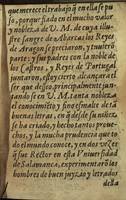 que merece el trabajo q̃ en ella se pu
so, porque fiado en el mucho valor
y nobleza de V. M. de cuya illu-
stre sangre de Abarcas los Reyes
de Aragon se preciaron, y tuuiero
parte: y sus padres con la noble de
los Castros, y Reyes de Portugal,
aumentaron, estoy cierto alcançara el
ser que desseo, principalmente jun-
tando se en V. M. tanta nobleza
el conocimiento y fino esmalte de la
buenas letras, en q̃ desde su niñez
se ha criado, y hecho tantos proue-
chos, y la mucha prudencia que to
do el mundo conoce, y en dos vezes
q̃ fue Rector en essa Vniuersidad
de Salamanca, experimentaron los
hombres de buen juyzio, y letrados
della